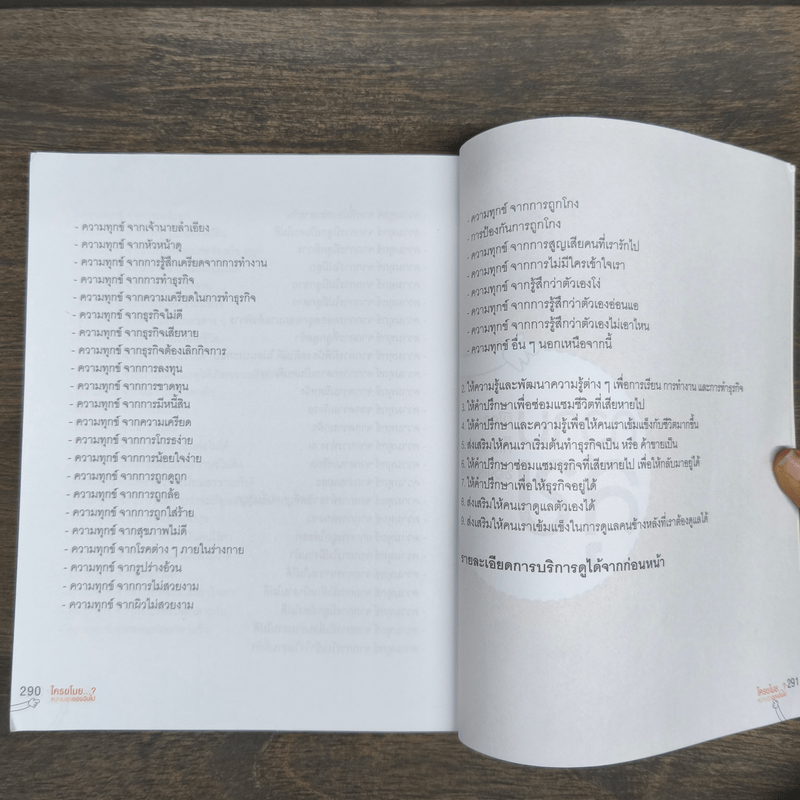 - ความทุกข์ จากเจ้านายลำเอียง
- ความทุกข์ จากหัวหน้าดุ
- ความทุกข์ จากการรู้สึกเครียดจากการทำงาน
- ความทุกข์ จากการทำธุรกิจ
- ความทุกข์ จากความเครียดในการทำธุรกิจ
- ความทุกข์ จากธุรกิจไม่ดี
- ความทุกข์ จากธุรกิจเสียหาย
- ความทุกข์ จากธุรกิจต้องเลิกกิจการ
- ความทุกข์ จากการลงทุน
- ความทุกข์ จากการขาดทุน
- ความทุกข์ จากการมีหนี้สิน
- ความทุกข์ จากความเครียด
- ความทุกข์ จากการโกรธง่าย
- ความทุกข์ จากการน้อยใจง่าย
- ความทุกข์ จากการถูกดูถูก
- ความทุกข์ จากการถูกล้อ
- ความทุกข์ จากการถูกใส่ร้าย
- ความทุกข์ จากสุขภาพไม่ดี
- ความทุกข์ จากโรคต่าง ๆ ภายในร่างกาย
- ความทุกข์ จากรูปร่างอ้วน
- ความทุกข์ จากการไม่สวยงาม
- ความทุกข์ จากผิวไม่สวยงาม
290 ใครขโมย...?
- ความทุกข์ จากการถูกโกง
- การป้องกันการถูกโกง
- ความทุกข์ จากการสูญเสียคนที่เรารักไป
- ความทุกข์ จากการไม่มีใครเข้าใจเรา
- ความทุกข์ จากรู้สึกว่าตัวเองโง่
- ความทุกข์ จากการรู้สึกว่าตัวเองอ่อนแอ
- ความทุกข์ จากการรู้สึกว่าตัวเองไม่เอาไหน
- ความทุกข์ อื่น ๆ นอกเหนือจากนี้
2. ให้ความรู้และพัฒนาความรู้ต่าง ๆ เพื่อการเรียน การทำงาน และการทำธุรกิจ
3. ให้คำปรึกษาเพื่อซ่อมแซมชีวิตที่เสียหายไป
4. ให้คำปรึกษาและความรู้เพื่อให้คนเราเข้มแข็งกับชีวิตมากขึ้น
5. ส่งเสริมให้คนเราเริ่มต้นทำธุรกิจเป็น หรือ ค้าขายเป็น
6. ให้คำปรึกษาซ่อมแซมธุรกิจที่เสียหายไป เพื่อให้กลับมาอยู่ได้
7. ให้คำปรึกษาเพื่อให้ธุรกิจอยู่ได้
8. ส่งเสริมให้คนเราดูแลตัวเองได้
9. ส่งเสริมให้คนเราเข้มแข็งในการดูแลคนข้างหลังที่เราต้องดูแลได้
รายละเอียดการบริการดูได้จากก่อนหน้า
ใครขโมย...? 291